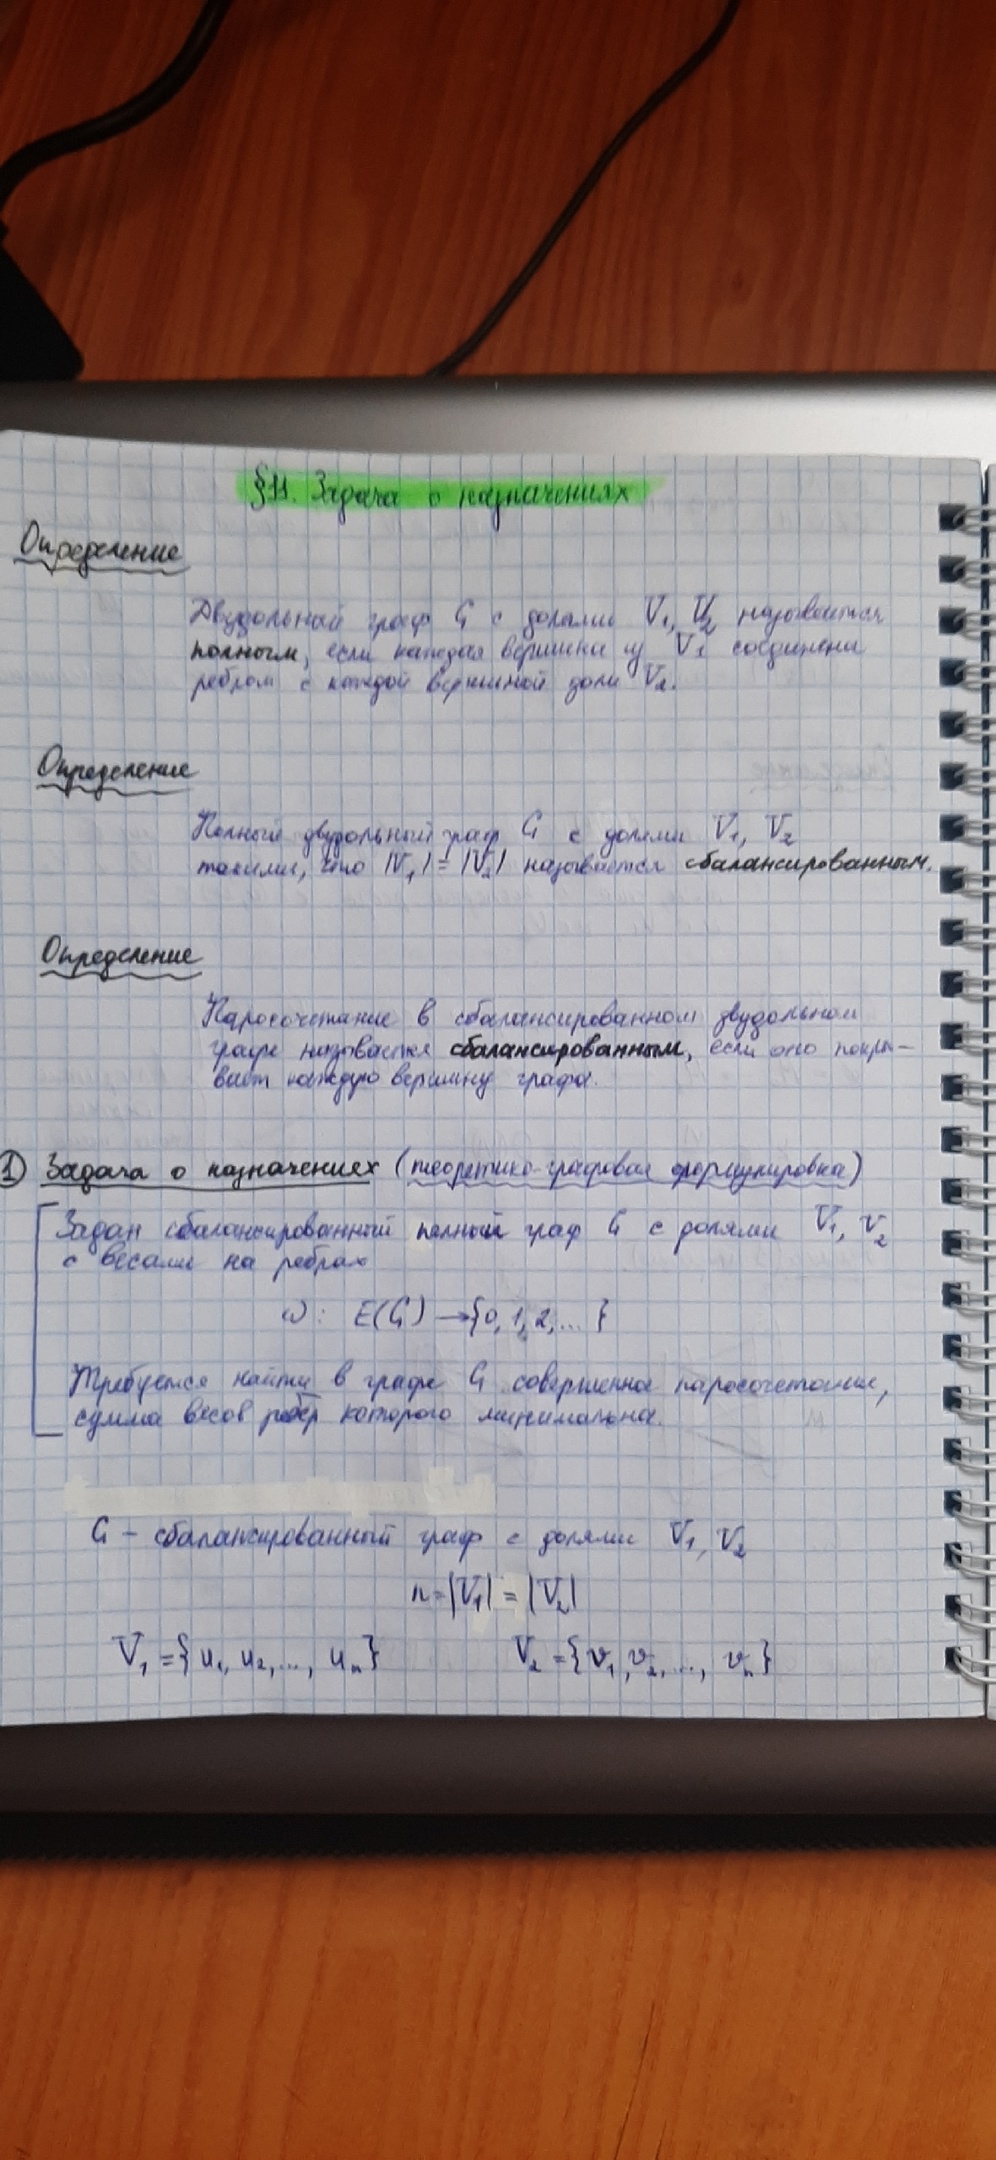 §11. Задача о назначениях
Определение
Двудольный граф G с долями V₁, V₂ называется
полным, если каждая вершина из V₁ соединена
ребром с каждой вершиной доли V₂.
Определение
Полный двудольный граф G с долями V₁, V₂
такими, что |V₁| = |V₂| называется сбалансированным.
Определение
Паросочетание в сбалансированном двудольном
графе называется сбалансированным, если оно покры-
вает каждую вершину графа.
1 Задача о назначениях (теоретико-графовая формулировка)
Задан сбалансированный полный граф G с долями V₁, V₂
с весами на ребрах
ω: E(G) → {0, 1, 2, ... }
Требуется найти в графе G совершенно паросочетание,
сумма весов рёбер которого минимальна.
G – сбалансированный граф с долями V₁, V₂
n = |V₁| = |V₂|
V₁ = {u₁, u₂, ..., uₙ} V₂ = {v₁, v₂, ..., vₙ}